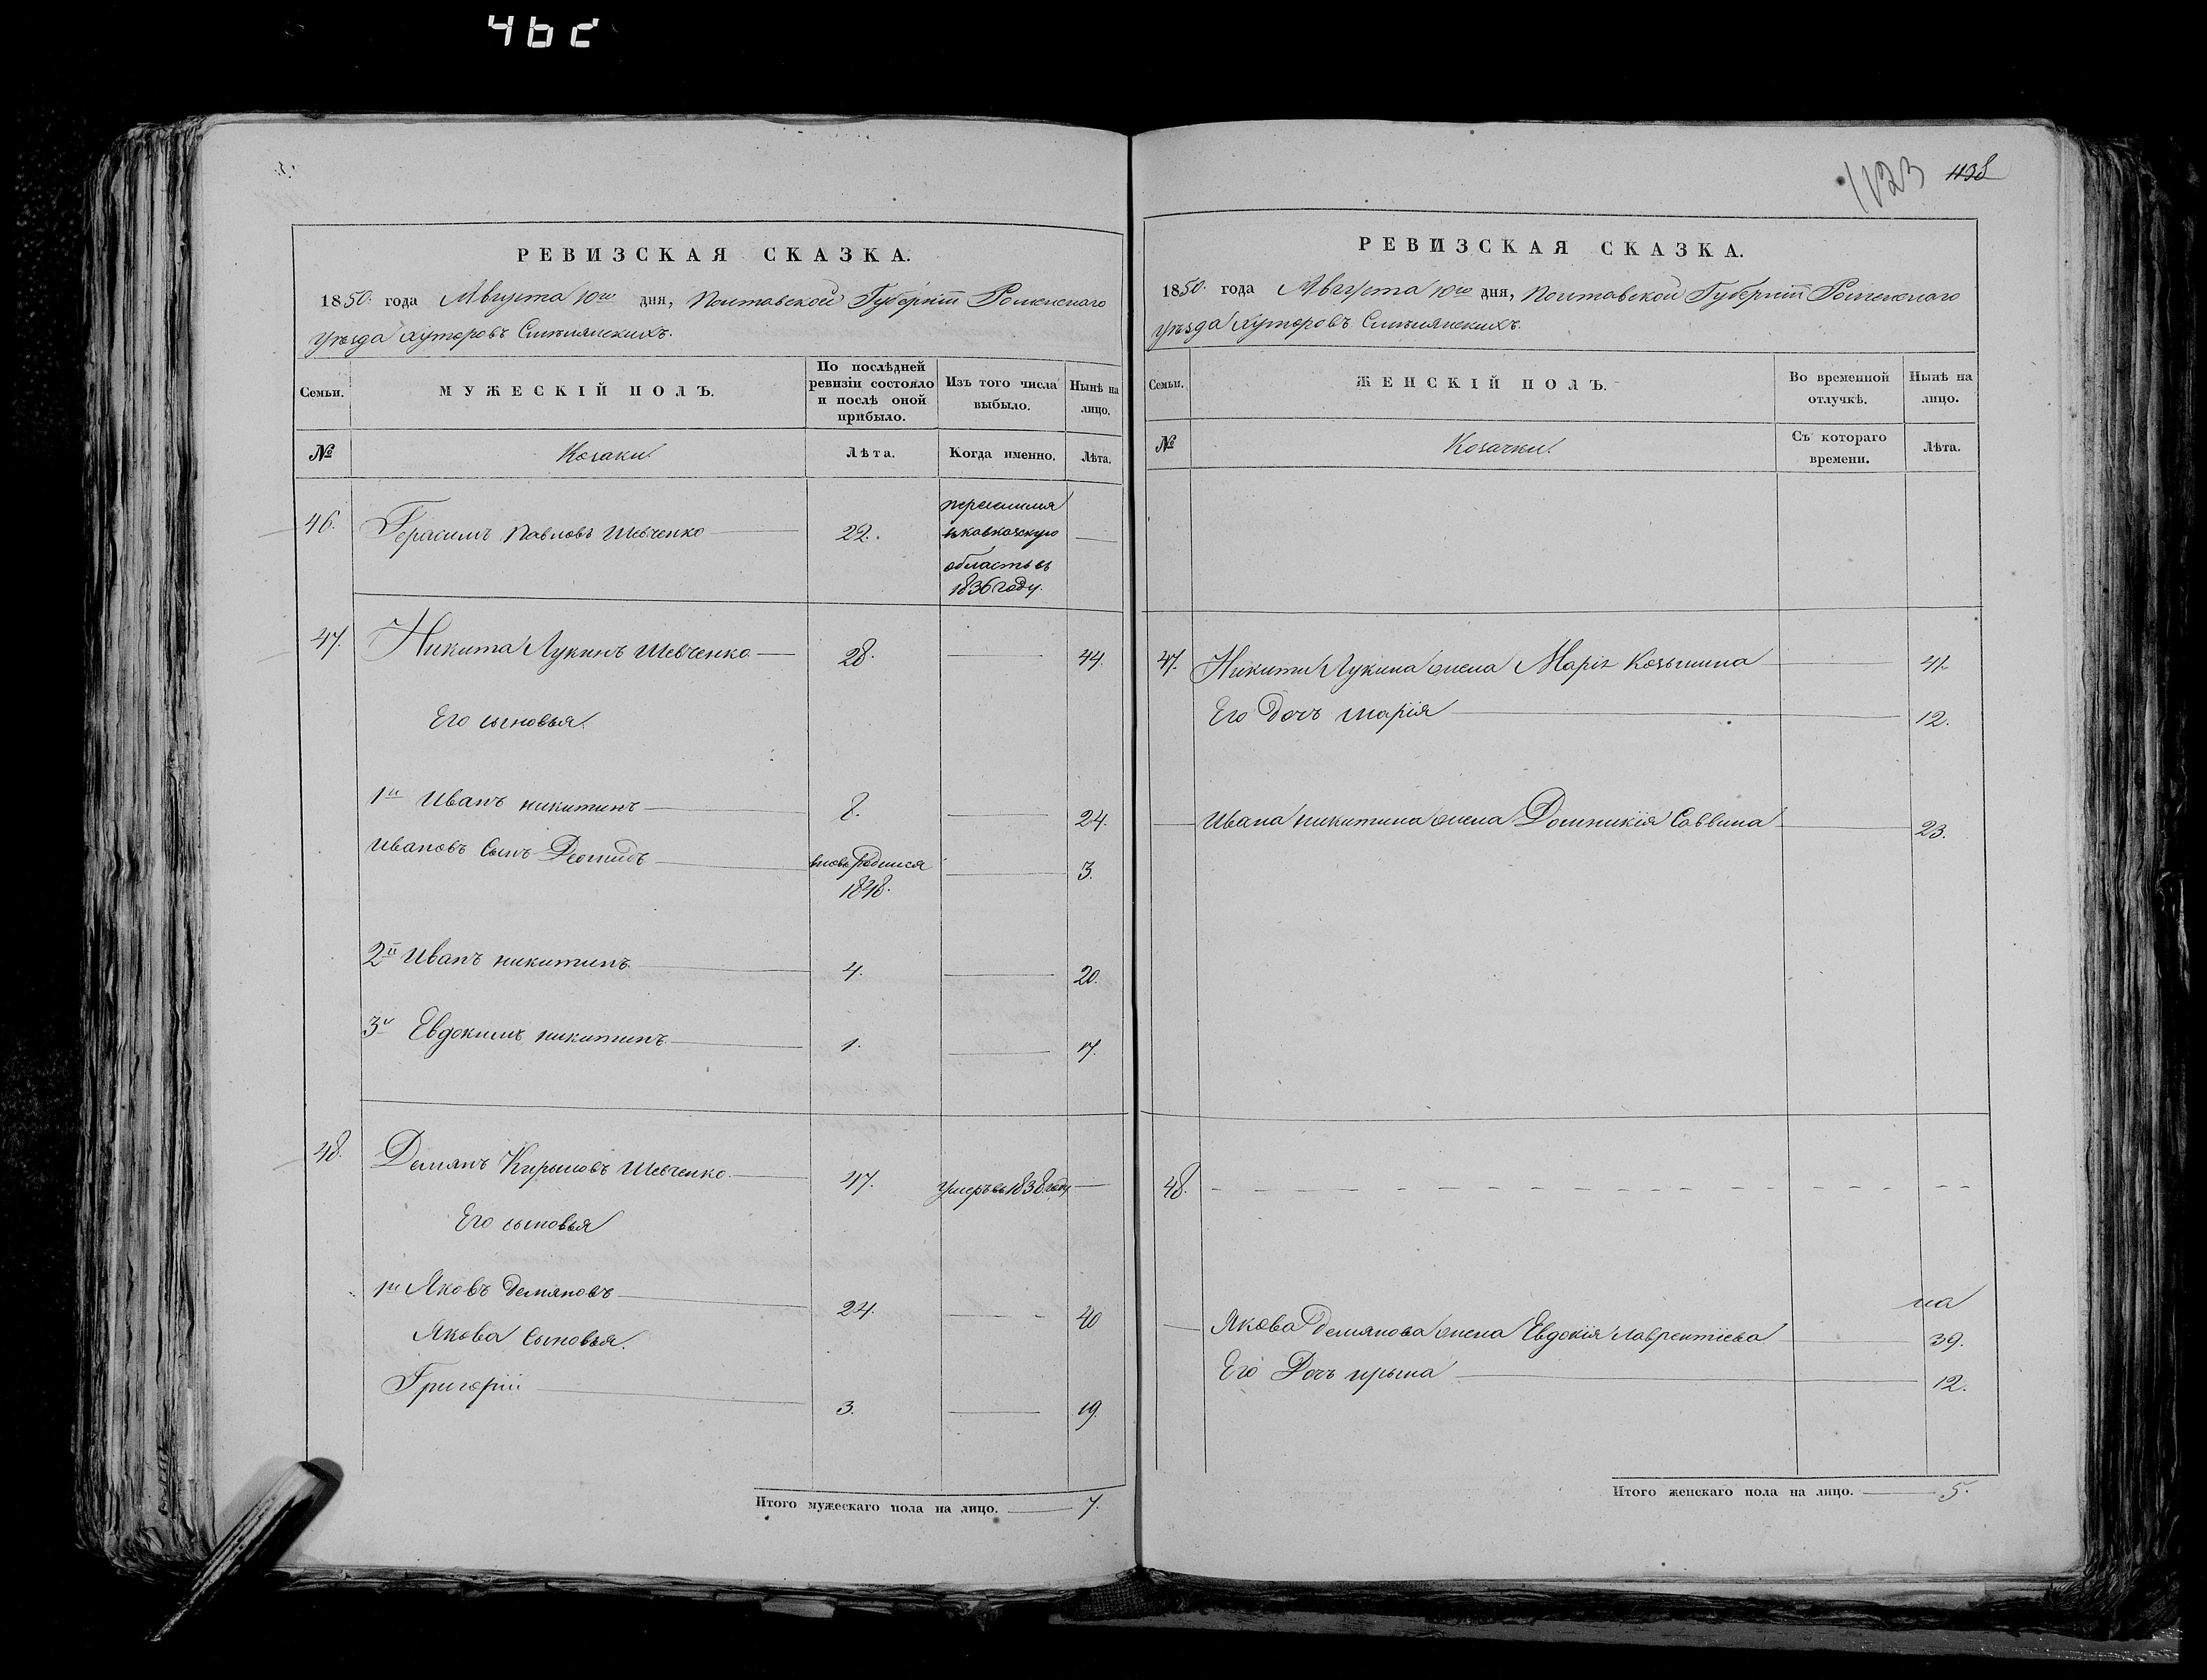 462
РЕВИЗСКАЯ СКАЗКА.
1850. года Августа 10го дня, Полтавской Губерніи Роменскаго
уѣзда хуторовъ Смѣлянскихъ.
Семьи.
МУЖЕСКІЙ ПОЛЪ.
По послѣдней ревизіи состояло и послѣ оной прибыло.
Изъ того числа выбыло.
Нынѣ на лицо.
№
Козаки.
Лѣта.
Когда именно.
Лѣта.
46. Герасимъ Павловъ Шевченко 22. переселился
въ кавказскую
область въ
1836 году.
47. Никита Лукинъ Шевченко 28. 44.
Его сыновья
1й Иванъ никитинъ 8. 24.
Ивановъ Сынъ вновь родился 3.
1848.
2й Иванъ никитинъ 4. 20.
3й Евдокимъ никитинъ 1. 17.
48. Демянъ Кириловъ Шевченко 47. умеръ въ 1838 году
Его сыновья
1й Яковъ Демяновъ 24. 40
Якова Сыновья
Григорій 3. 19.
Итого мужескаго пола на лицо. 7.
1123 1138
РЕВИЗСКАЯ СКАЗКА.
1850. года Августа 10го дня, Полтавской Губерніи Роменскаго
уѣзда хуторовъ Смѣлянскихъ.
Семьи.
ЖЕНСКІЙ ПОЛЪ.
Во временной отлучкѣ.
Нынѣ на лицо.
№
Козачки.
Съ котораго времени.
Лѣта.
47. Никиты Лукина жена Марія Козьмина
Его Дочь марія 12.
Ивана никитина жена Домникія Саввина 23.
48.
Якова Демянова жена Евдокія лаврентіева 39.
Его Дочь ирына 12.
Итого женскаго пола на лицо. 5.